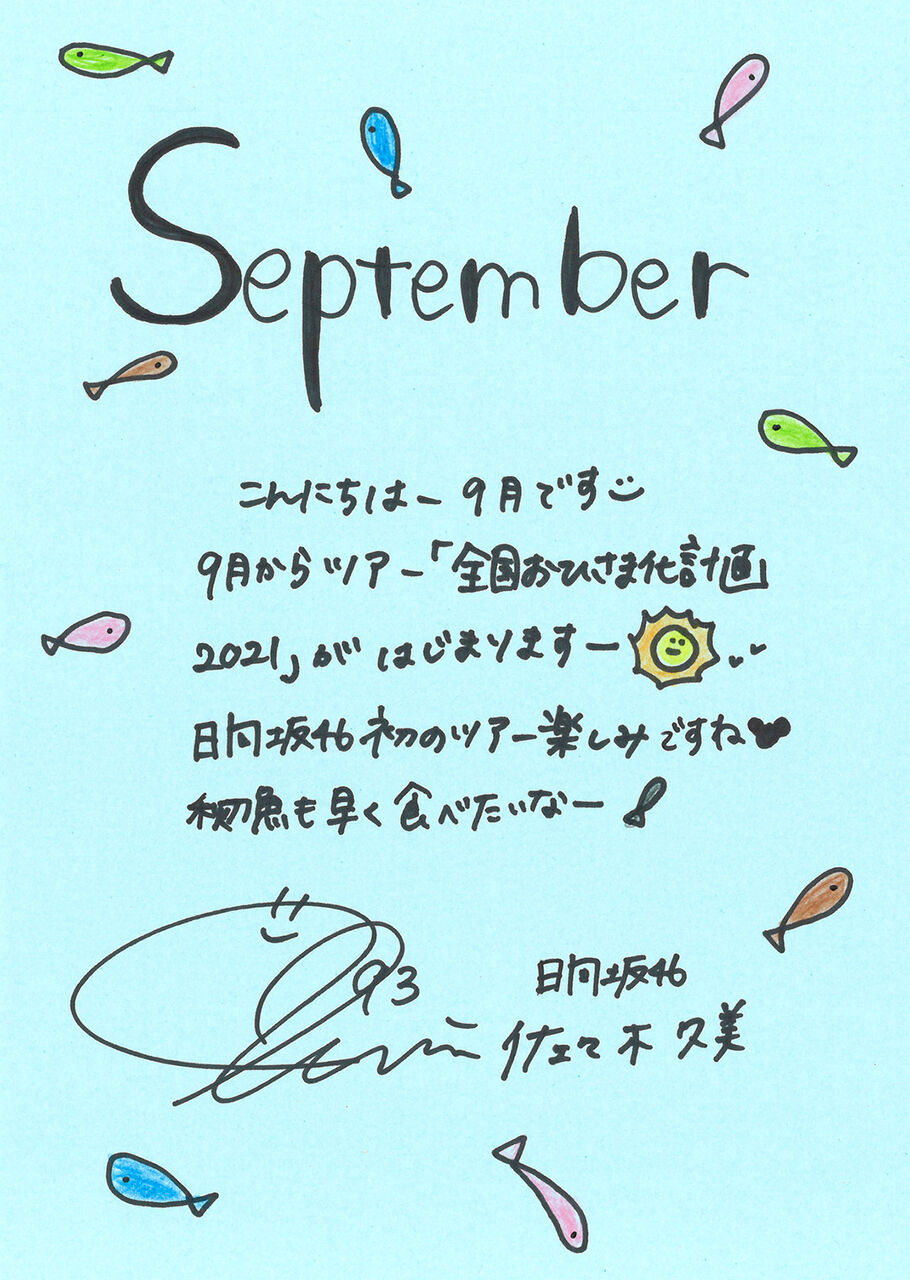 September
こんにちはー 9月です
9月からツアー「全国おひさま化計画
2021」がはじまりますー
日向坂46初のツアー楽しみですね
秋刀魚も早く食べたいなー
93
日向坂46
佐々木久美